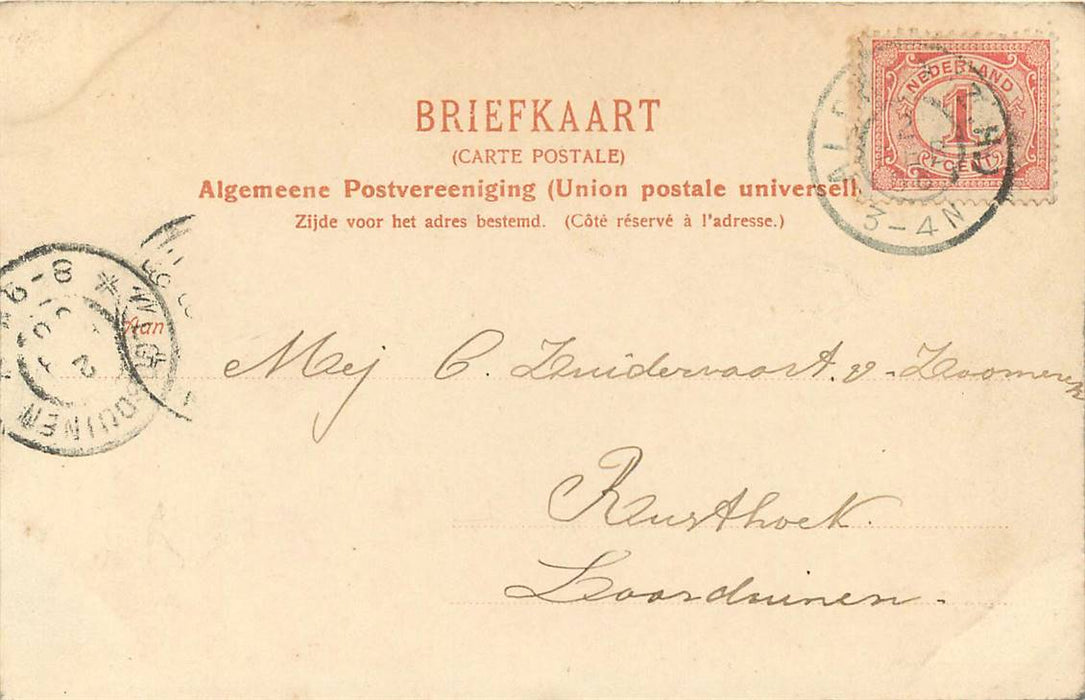 BRIEFKAART
(CARTE POSTALE)
Algemeene Postvereeniging (Union postale universell
Zijde voor het adres bestemd. (Côté réservé à l'adresse.)
NEDERLAND
1
CENT
3-4N
8-9
DUINEN
Aan
Mej C. Zuidervaart. v. Loomeren
Rusthoek.
Loosduinen.